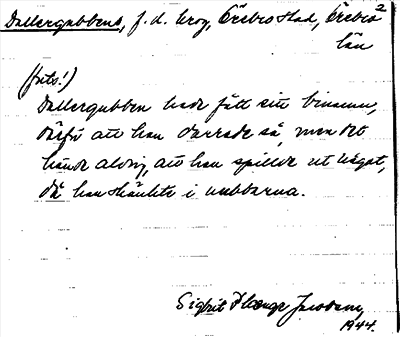 2
Dallergubbens, f.d. krog, Örebro stad, Örebro
län
(förts!)
Dallergubben hade fått sitt binamn,
därför att han darrade så, men det
hände aldrig, att han spillde ut något,
då han skänkte i nubbarna.
Sigfrid
1944.